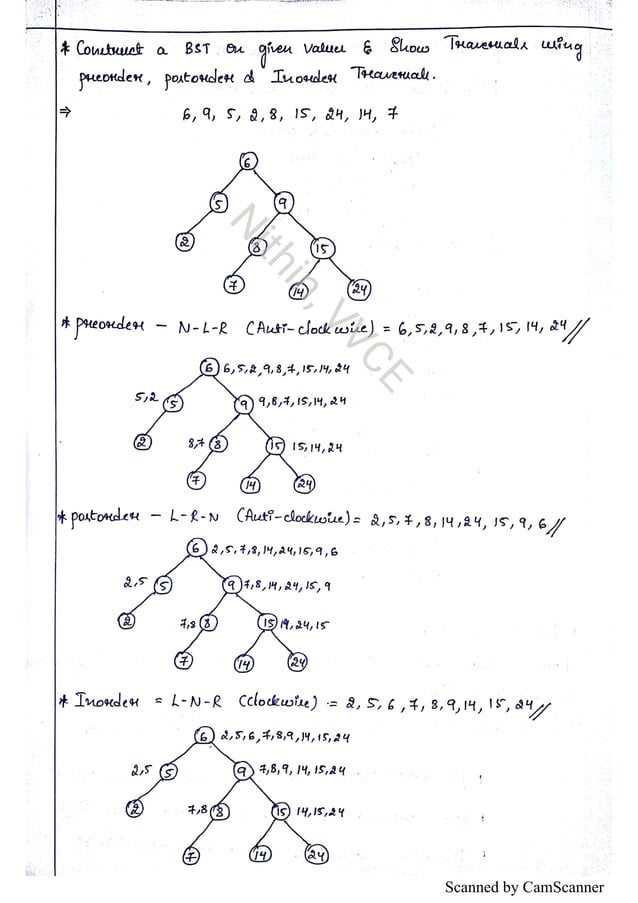 * Construct a BST on given value & Show Traversals using
preorder, postorder & Inorder Traversal.
⇒ 6, 9, 5, 2, 8, 15, 24, 14, 7
6
5 9
2 8 15
7 14 24
* preorder – N-L-R (Anti-clockwise) = 6, 5, 2, 9, 8, 7, 15, 14, 24 //
6 6, 5, 2, 9, 8, 7, 15, 14, 24
5, 2 5 9 9, 8, 7, 15, 14, 24
2 8, 7 8 15 15, 14, 24
7 14 24
* postorder – L-R-N (Anti-clockwise) = 2, 5, 7, 8, 14, 24, 15, 9, 6 //
6 2, 5, 7, 8, 14, 24, 15, 9, 6
2, 5 5 9 7, 8, 14, 24, 15, 9
2 7, 8 8 15 14, 24, 15
7 14 24
* Inorder = L-N-R (clockwise) = 2, 5, 6, 7, 8, 9, 14, 15, 24 //
6 2, 5, 6, 7, 8, 9, 14, 15, 24
2, 5 5 9 7, 8, 9, 14, 15, 24
2 7, 8 8 15 14, 15, 24
7 14 24
Nithin, VVCE
Scanned by CamScanner